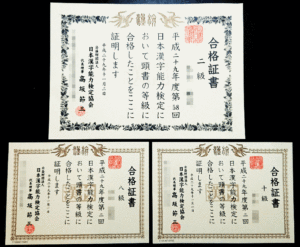 合格証書
二級
平成二十九年度第58回
日本漢字能力検定に
おいて頭書の等級に
合格したことをここに
証明します
日本漢字能力検定協会
高坂節三
合格証書
八級
平成二十九年度第二回
日本漢字能力検定に
おいて頭書の等級に
合格したことをここに
証明します
日本漢字能力検定協会
高坂節三
合格証書
十級
平成二十九年度第二回
日本漢字能力検定に
おいて頭書の等級に
合格したことをここに
証明します
日本漢字能力検定協会
高坂節三